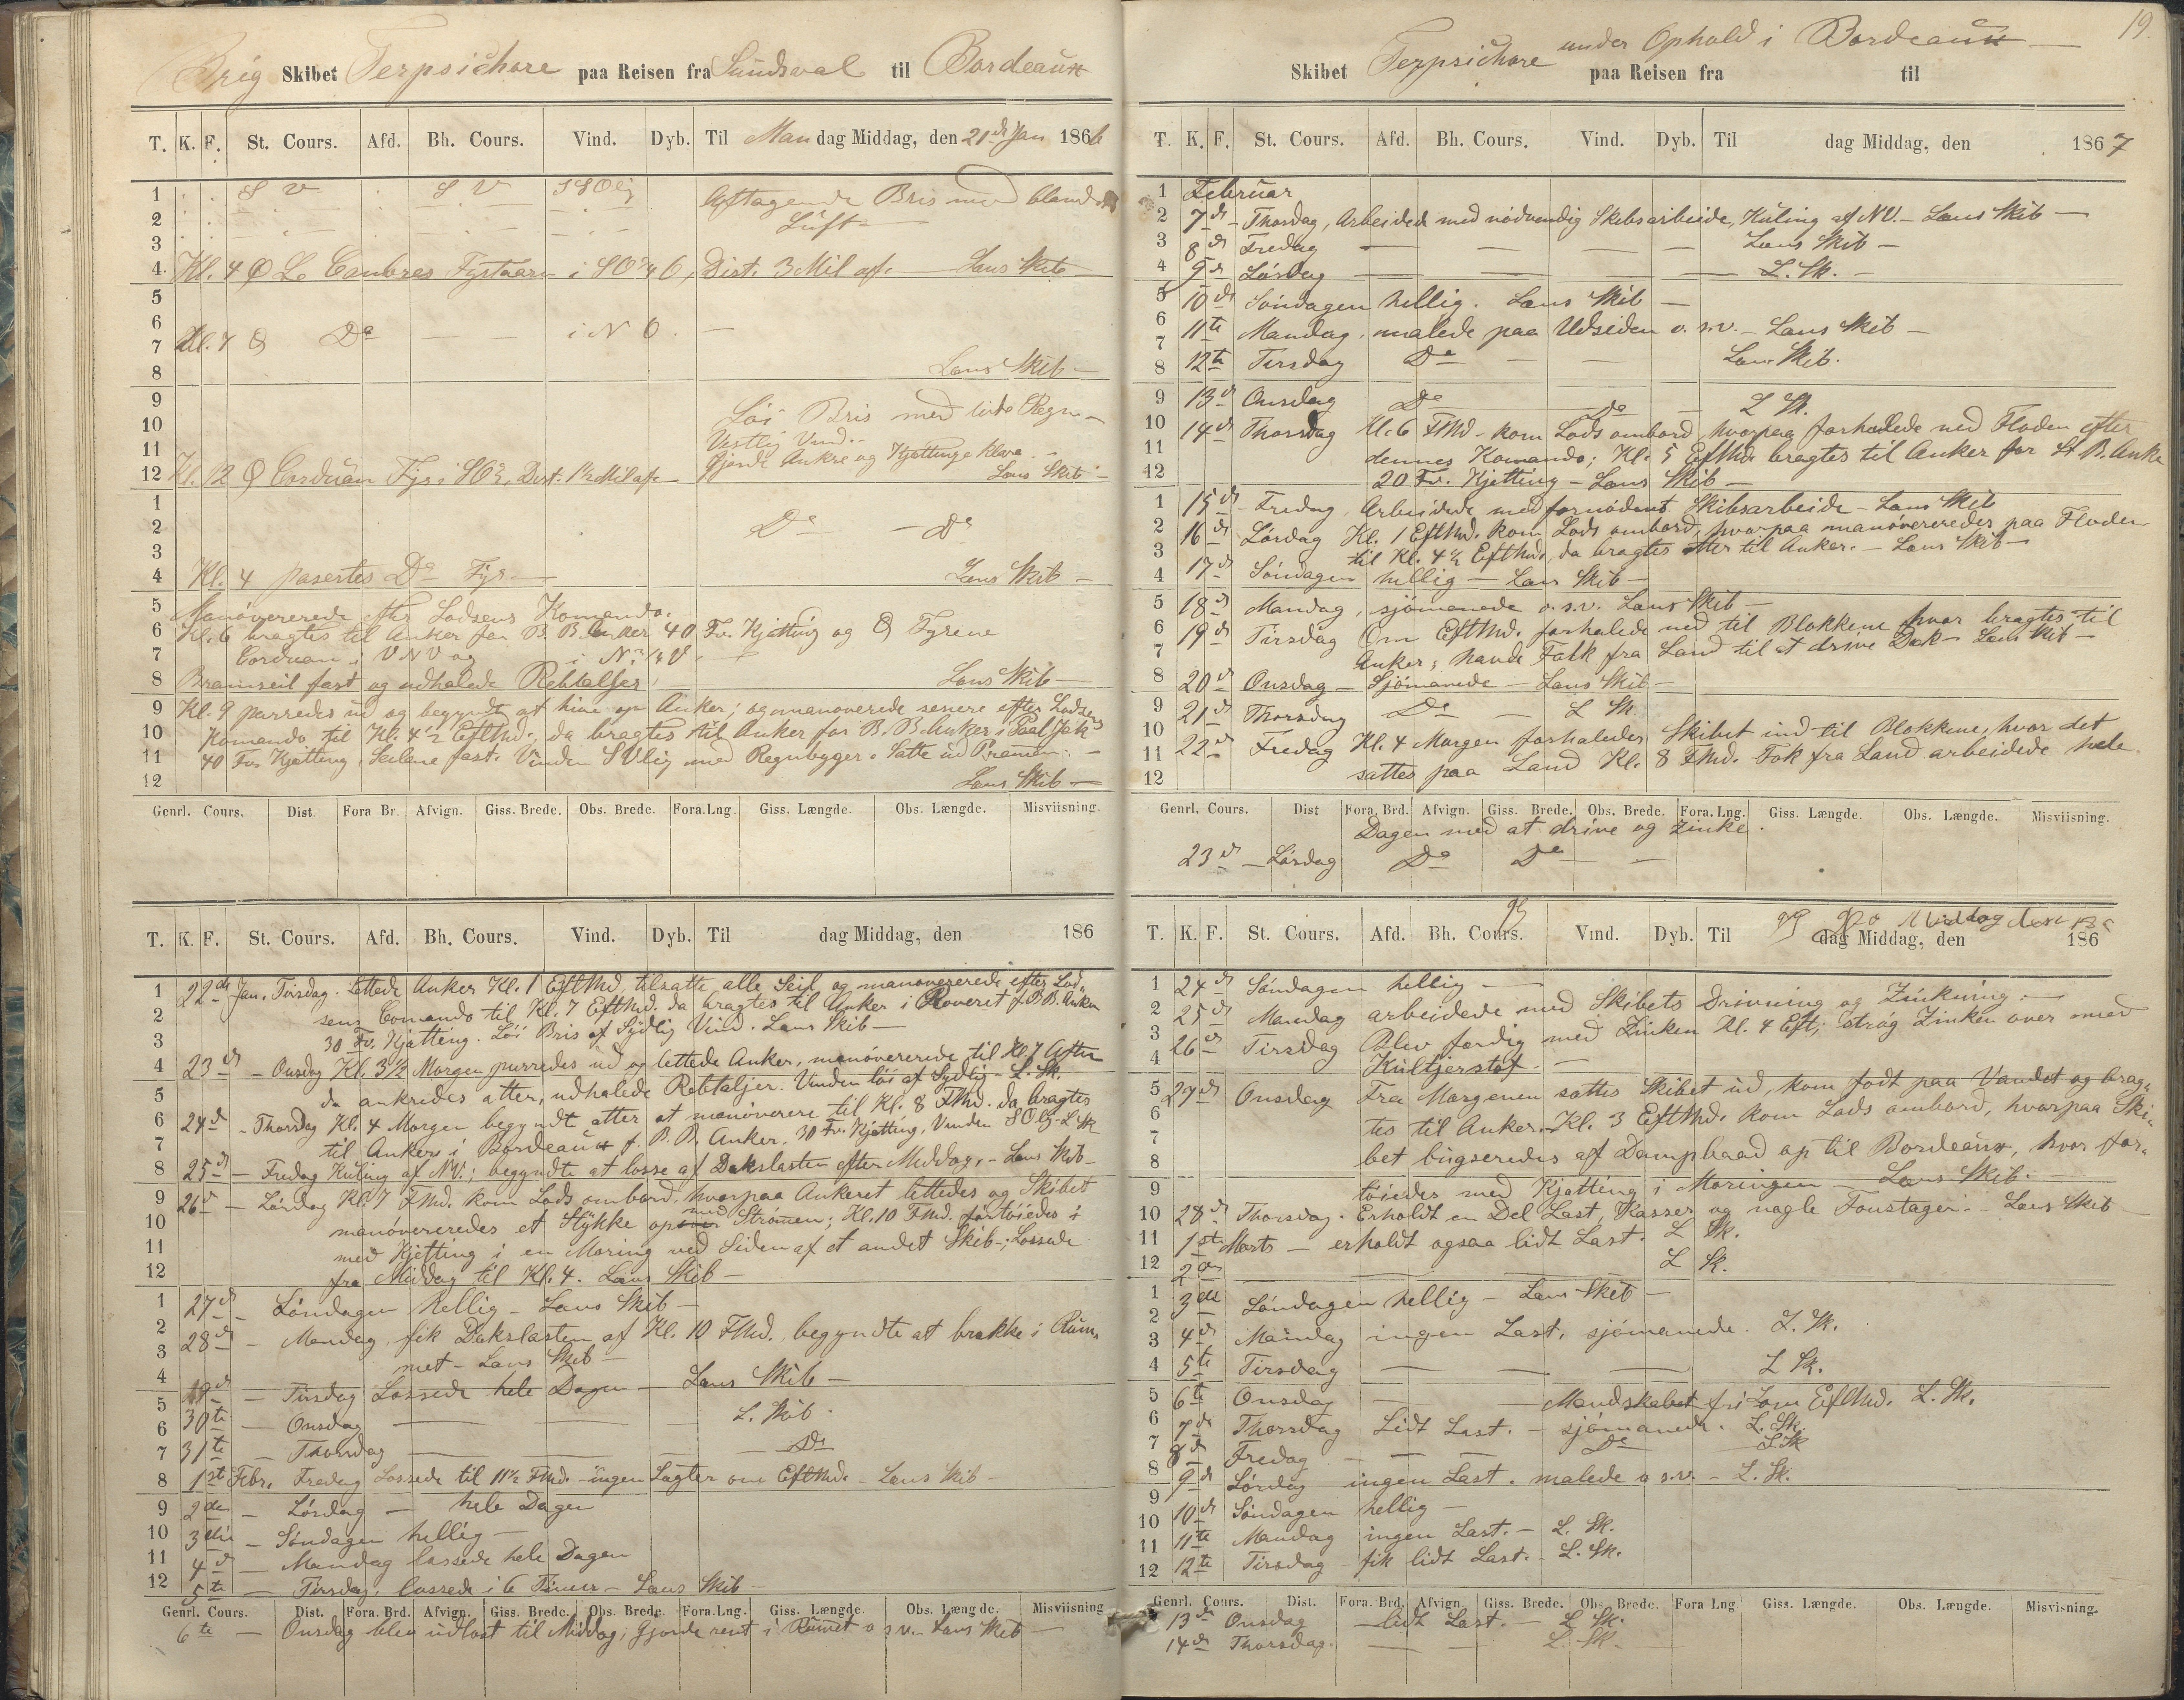 Brig Skibet Terpsichore paa Reisen fra Sundsval til Bordeaux
T. K. F. St. Cours. Afd. Bh. Cours. Vind. Dyb. Til Mandag Middag, den 21de Jan 1866
1 S V S V SSOlig Aftagende Bris med blandet
2 Luft
3
4 Kl. 4 Le Coubres Fyrtaarn i SO¾O, Dist. 3 Mil af. Lens Skib
5
6
7 Kl. 7 Do i N O.
8 Lens Skib
9
10 Løi Bris med lidt Regn
11 Vestlig Vind. Gjorde Ankre og Kjættinge klare
12 Kl. 12 Corduan Fyr i SO, Dist. 1½ Mil af Lens Skib
1
2 Do Do
3
4 Kl. 4 pasertes Do Fyr Lens Skib
5 Manøvererede efter Lodsens Komando.
6 Kl. 6 bragtes til Anker for B. B. Anker 40 Fv. Kjætting og Fyrene
7 Corduan i VNV og i N.
8 Bramseil fast og udhalede Rebtaljer Lens Skib
9 Kl. 9 purredes ud og begyndte at hive op Anker; og manøvrerede senere efter Lodsens
10 Komando til Kl. 4½ EftMd., da bragtes til Anker for B. B. Anker i
11 40 Fv. Kjætting, Seilene fast. Vinden SVlig med Regnbyger. Satte ud Pramen.
12 Lens Skib
Genrl. Cours. Dist. Fora Br. Afvign. Giss. Brede. Obs. Brede. Fora.Lng. Giss. Længde. Obs. Længde. Misviisning.
T. K. F. St. Cours. Afd. Bh. Cours. Vind. Dyb. Til dag Middag, den 186
1 22de Jan. Tirsdag. Lettede Anker Kl. 1 EftMd, tilsatte alle Seil og manøvererede efter Lod-
2 sens Comando til Kl. 7 EftMd. da bragtes til Anker i Roveret f. B. B. Anker
3 30 Fv. Kjætting. Løi Bris af Sydlig Vind. Lens Skib
4 23de Onsdag Kl. 3½ Morgen purredes ud og lettede Anker, manøvererede til Kl. 7 Aften
5 da ankredes atter, udhalede Rebtaljer. Vinden løi af Sydlig L. Sk.
6 24de Thorsdag Kl. 4 Morgen begyndt atter at manøverere til Kl. 8 FMd. da bragtes
7 til Ankers i Bordeaux f. B. B. Anker. 30 Fv. Kjætting, Vinden SOlig L. Sk
8 25de Fredag Kuling af NV.; begyndte at losse af Dækslasten efter Middag. Lens Skib
9 26de Lørdag Kl. 7 FMd. kom Lods ombord, hvorpaa Ankeret lettedes og Skibet
10 manøvereredes et Stykke op med Strømen; Kl. 10 FMd. fortøiedes i
11 med Kjætting i en Moring ved Siden af et andet Skib; Lossede
12 fra Middag til Kl. 4. Lens Skib
1 27de Søndagen hellig - Lens Skib
2 28de Mandag, fik Dækslasten af Kl. 10 FMd., begyndte at brække i Rum-
3 met - Lens Skib
4 29de Tirsdag Lossede hele Dagen - Lens Skib
5 30te Onsdag L. Skib
6 31te Thorsdag Do
7
8 1ste Febr. Fredag Lossede til 11½ FMd. - ingen Lægter om EftMd. - Lens Skib
9 2den Lørdag hele Dagen
10 3die Søndagen hellig
11 4de Mandag lossede hele Dagen
12 5te Tirsdag, lossede i 6 Timer - Lens Skib
Genrl. Cours. Dist. Fora. Brd. Afvign. Giss. Brede. Obs. Brede. Fora.Lng. Giss. Længde. Obs. Længde. Misviisning
6te Onsdag blev udlost til Middag; Gjorde rent i Rumet o s v. Lens Skib
19.
Skibet Terpsichore under Ophold i Bordeaux paa Reisen fra til
T. K. F. St. Cours. Afd. Bh. Cours. Vind. Dyb. Til dag Middag, den 1867
1 Februar
2 7de Thorsdag, Arbeidede med nødvendig Skibsarbeide, Kuling af NV. - Lens Skib
3 8de Fredag Lens Skib
4 9de Lørdag L. Sk.
5 10de Søndagen hellig. Lens Skib
6 11te Mandag, malede paa Udsiden o. s. v. - Lens Skib
7
8 12te Tirsdag Do Lens Skib.
9 13de Onsdag Do Do L Sk.
10 14de Thorsdag Kl. 6 FMd. kom Lods ombord, hvorpaa forhalede ned Floden efter
11 dennes Komando; Kl. 5 EftMd. bragtes til Anker for St. B. Anke
12 20 Fv. Kjætting - Lens Skib
1 15de Fredag, Arbeidede med fornødent Skibsarbeide - Lens Skib
2 16de Lørdag Kl. 1 EftMd. kom Lods ombord, hvorpaa manøvereredes paa Floden
3 til Kl. 4½ EftMd., da bragtes atter til Anker. - Lens Skib
4 17de Søndagen hellig - Lens Skib
5 18de Mandag, sjømanede o. s. v. Lens Skib
6 19de Tirsdag Om EftMd. forhalede ned til Blokkene hvor bragtes til
7 Anker; havde Folk fra Land til at drive Dæk - Lens Skib
8 20de Onsdag - Sjømanede - Lens Skib
9 21de Thorsdag Do L Sk
10 22de Fredag Kl. 4 Morgen forhaledes Skibet ind til Blokkene, hvor det
11 sattes paa Land Kl. 8 FMd. Folk fra Land arbeidede hele
12
Genrl. Cours. Dist Fora. Brd. Afvign. Giss. Brede. Obs. Brede. Fora. Lng. Giss. Længde. Obs. Længde. Misviisning.
Dagen med at drive og zinke.
23de Lørdag Do Do
Middag den
T. K. F. St. Cours. Afd. Bh. Cours. Vind. Dyb. Til dag Middag, den 186
1 24de Søndagen hellig
2 25de Mandag arbeidede med Skibets Drivning og Zinkning.
3 26de Tirsdag Blev færdig med Zinken Kl. 4 Eft; strøg Zinken over med
4 Kultjerstof.
5 27de Onsdag Fra Morgenen sattes Skibet ud, kom fodt paa Vandet og brag-
6 tes til Anker. Kl. 3 EftMd. kom Lods ombord, hvorpaa Ski-
7 bet bugseredes af Dampbaad op til Bordeaux, hvor for-
8
9 tøiedes med Kjætting i Moringen - Lens Skib.
10 28de Thorsdag. Erholdt en Del Last, Kasser og nogle Foustager. - Lens Skib
11 1ste Marts - erholdt ogsaa lidt Last. L Sk.
12 2den L Sk.
1 3die Søndagen hellig - Lens Skib
2 4de Mandag ingen Last, sjømanede. L. Sk.
3
4 5te Tirsdag L Sk.
5 6te Onsdag Mandskabet fri om EftMd. L. Sk.
6 7de Thorsdag Lidt Last. - sjømanede. L. Sk.
7 8de Fredag Do L. Sk
8 9de Lørdag ingen Last. malede o s. v. - L. Sk.
9
10 10de Søndagen hellig
11 11te Mandag ingen Last. - L. Sk.
12 12te Tirsdag - fik lidt Last. - L. Sk.
Genrl. Cours. Dist. Fora. Brd. Afvign. Giss. Brede. Obs. Brede. Fora Lng. Giss. Længde. Obs. Længde. Misviisning.
13de Onsdag lidt Last. - L Sk.
14de Thorsdag. L. Sk.